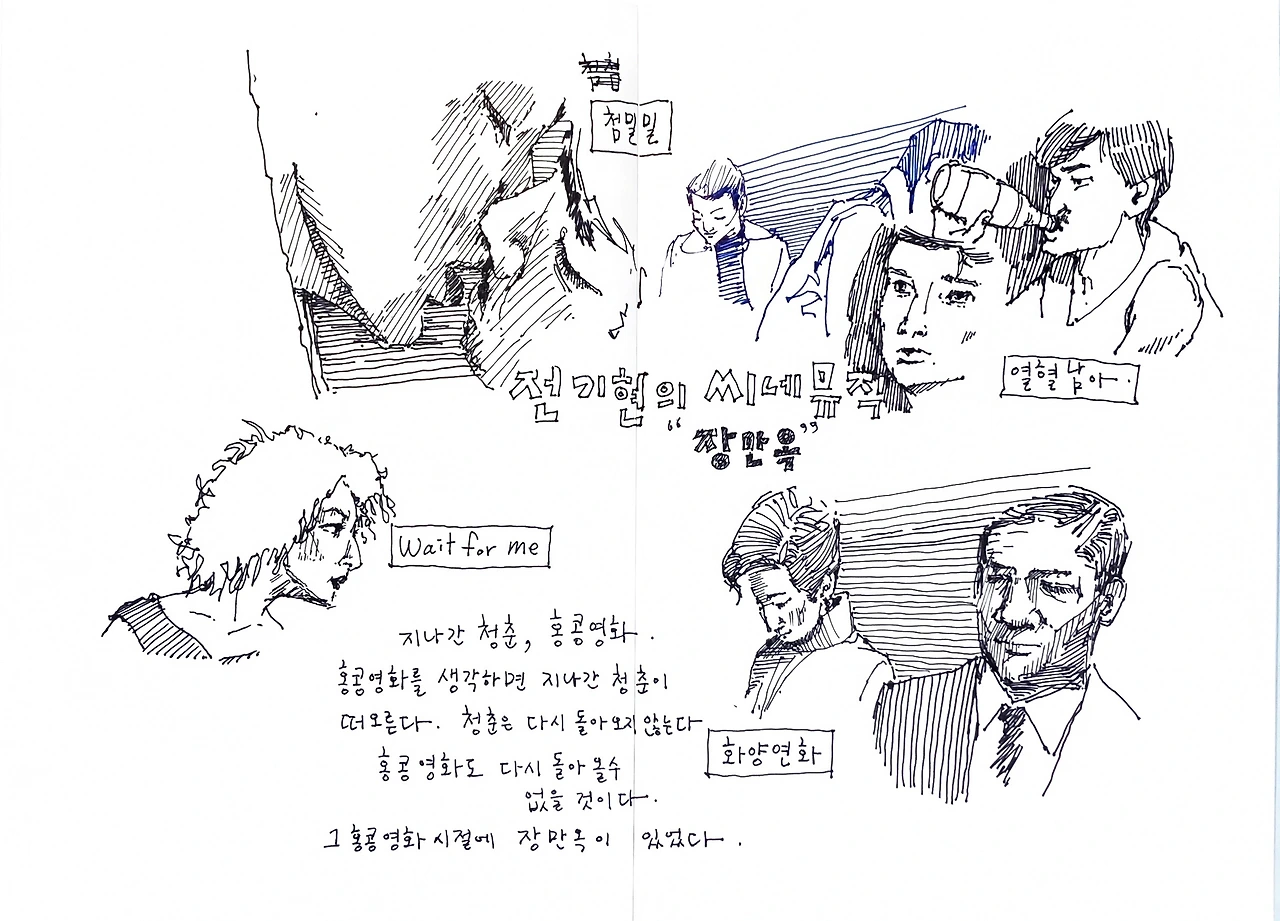 첨밀밀
열혈남아.
전기현의 씨네뮤직
“장만옥”
Wait for me
지나간 청춘, 홍콩영화.
홍콩영화를 생각하면 지나간 청춘이
떠오른다. 청춘은 다시 돌아오지 않는다
홍콩 영화도 다시 돌아올수
없을 것이다.
화양연화
그 홍콩영화 시절에 장만옥이 있었다.